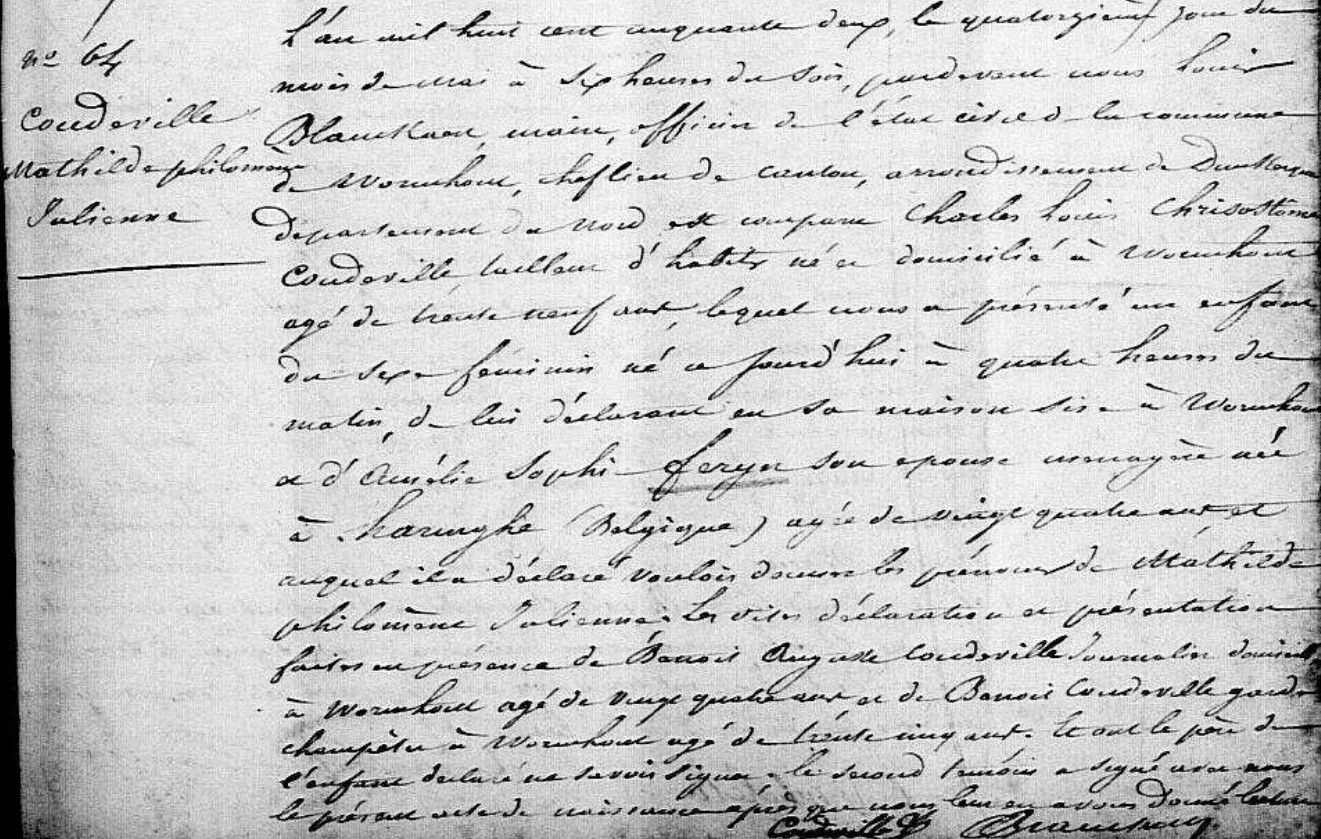 nº 64
Coudeville
Mathilde philomène
Julienne
L'an mil huit cent cinquante deux, le quatorzième jour du
mois de mai à six heures du soir, pardevant nous Louis
Blanckaert, maire, officier de l'état civil de la commune
de Wormhout, cheflieu de canton, arrondissement de Dunkerque
département du Nord est comparu Charles Louis Chrisostome
Coudeville tailleur d'habits né et domicilié à Wormhout
agé de trente neuf ans, lequel nous a présenté un enfant
du sexe féminin né ce jourd'hui à quatre heures du
matin, de lui déclarant en sa maison sise à Wormhout
et d'Amélie Sophie feryn son epouse menagère née
à haringhe (Belgique) agée de vingt quatre ans, et
auquel il a déclaré vouloir donner les prénoms de Mathilde
philomène Julienne. Les dites déclaration et présentation
faites en présence de Benoit Auguste Coudeville Journalier domicilié
à Wormhout agé de vingt quatre ans, et de Benoit Coudeville garde
champêtre à Wormhout agé de trente cinq ans. Et ont le père de
l'enfant déclaré ne savoir signer. le second temoin a signé avec nous
le présent acte de naissance après que nous leur en avons donné lecture
Coudeville B Blanckaert